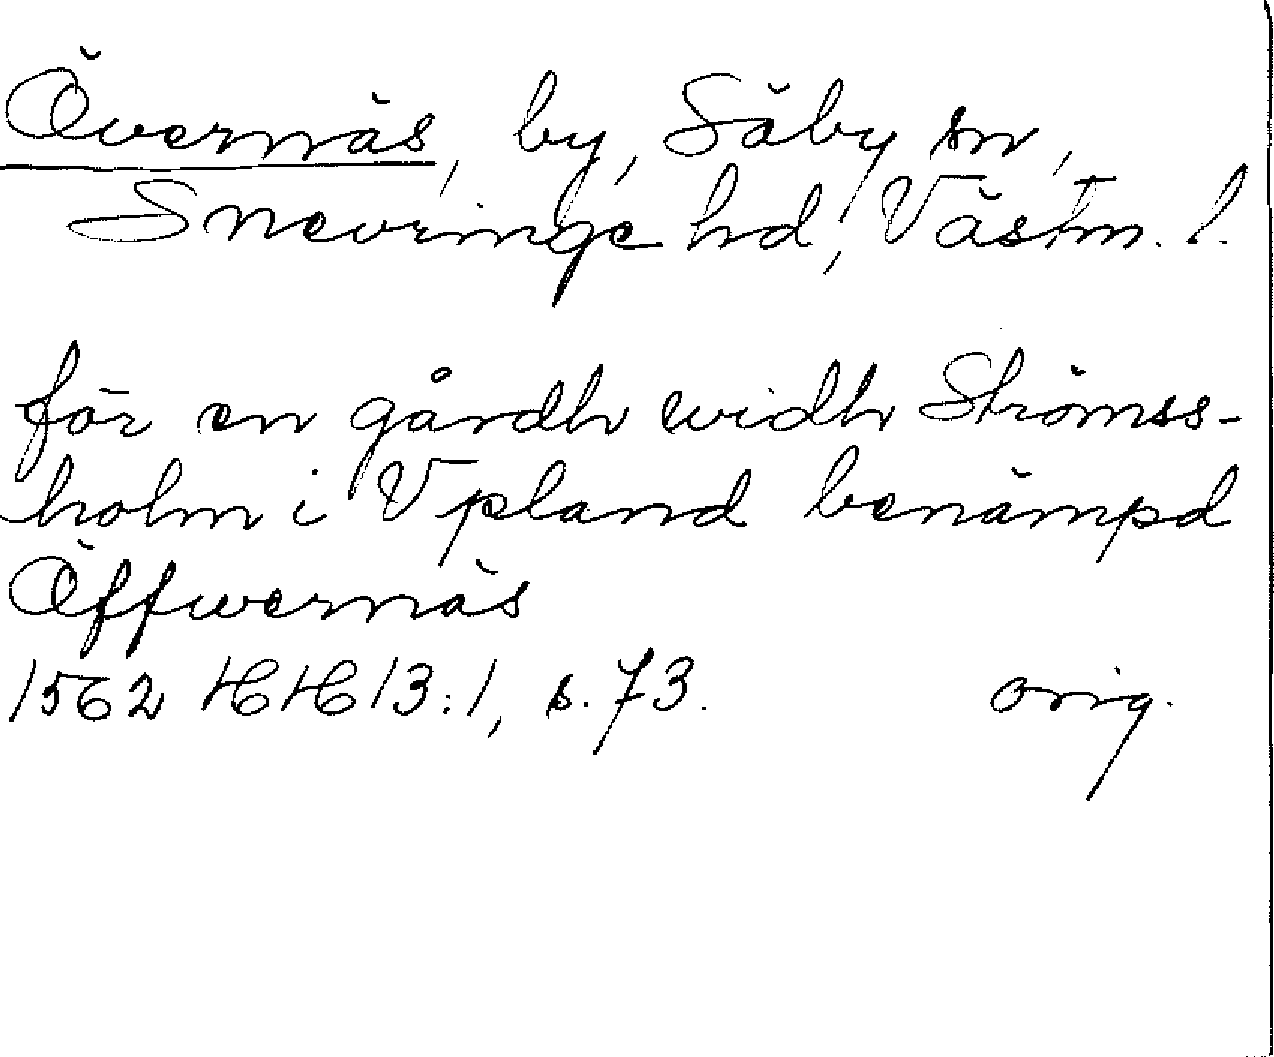 Övernäs, by, Säby sn,
Snevringe hd, Västm. l.
för en gårdh widh Strömss-
holm i Vpland benämpd
Öffwernäs
1562 HH 13:1, s. 73. orig.